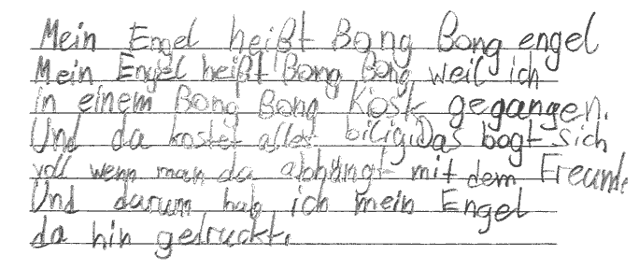 Mein Engel heißt Bong Bong engel
Mein Engel heißt Bong Bong weil ich
in einem Bong Bong Kiosk gegangen.
Und da kostet alles biligi Das bogt sich
voll wenn man da abhängt mit dem Freunde
Und darum hab ich mein Engel
da hin gedruckt.